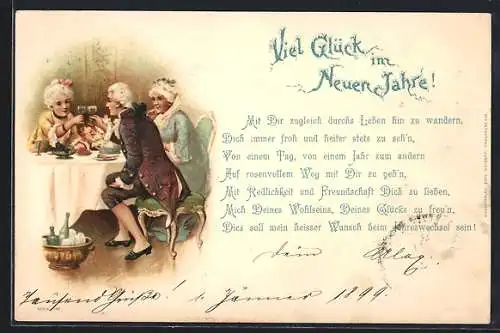 Viel Glück
im
Neuen Jahre!
Mit Dir zugleich durchs Leben hin zu wandern,
Dich immer froh und heiter stets zu seh'n,
Von einem Tag, von einem Jahr zum andern
Auf rosenvollem Weg mit Dir zu geh'n,
Mit Redlichkeit und Freundschaft Dich zu lieben,
Mich Deines Wohlseins, Deines Glücks zu freu'n,
Dies soll mein heisser Wunsch beim Jahreswechsel sein!
dein
Tausend Grüße! 1. Jänner 1899.